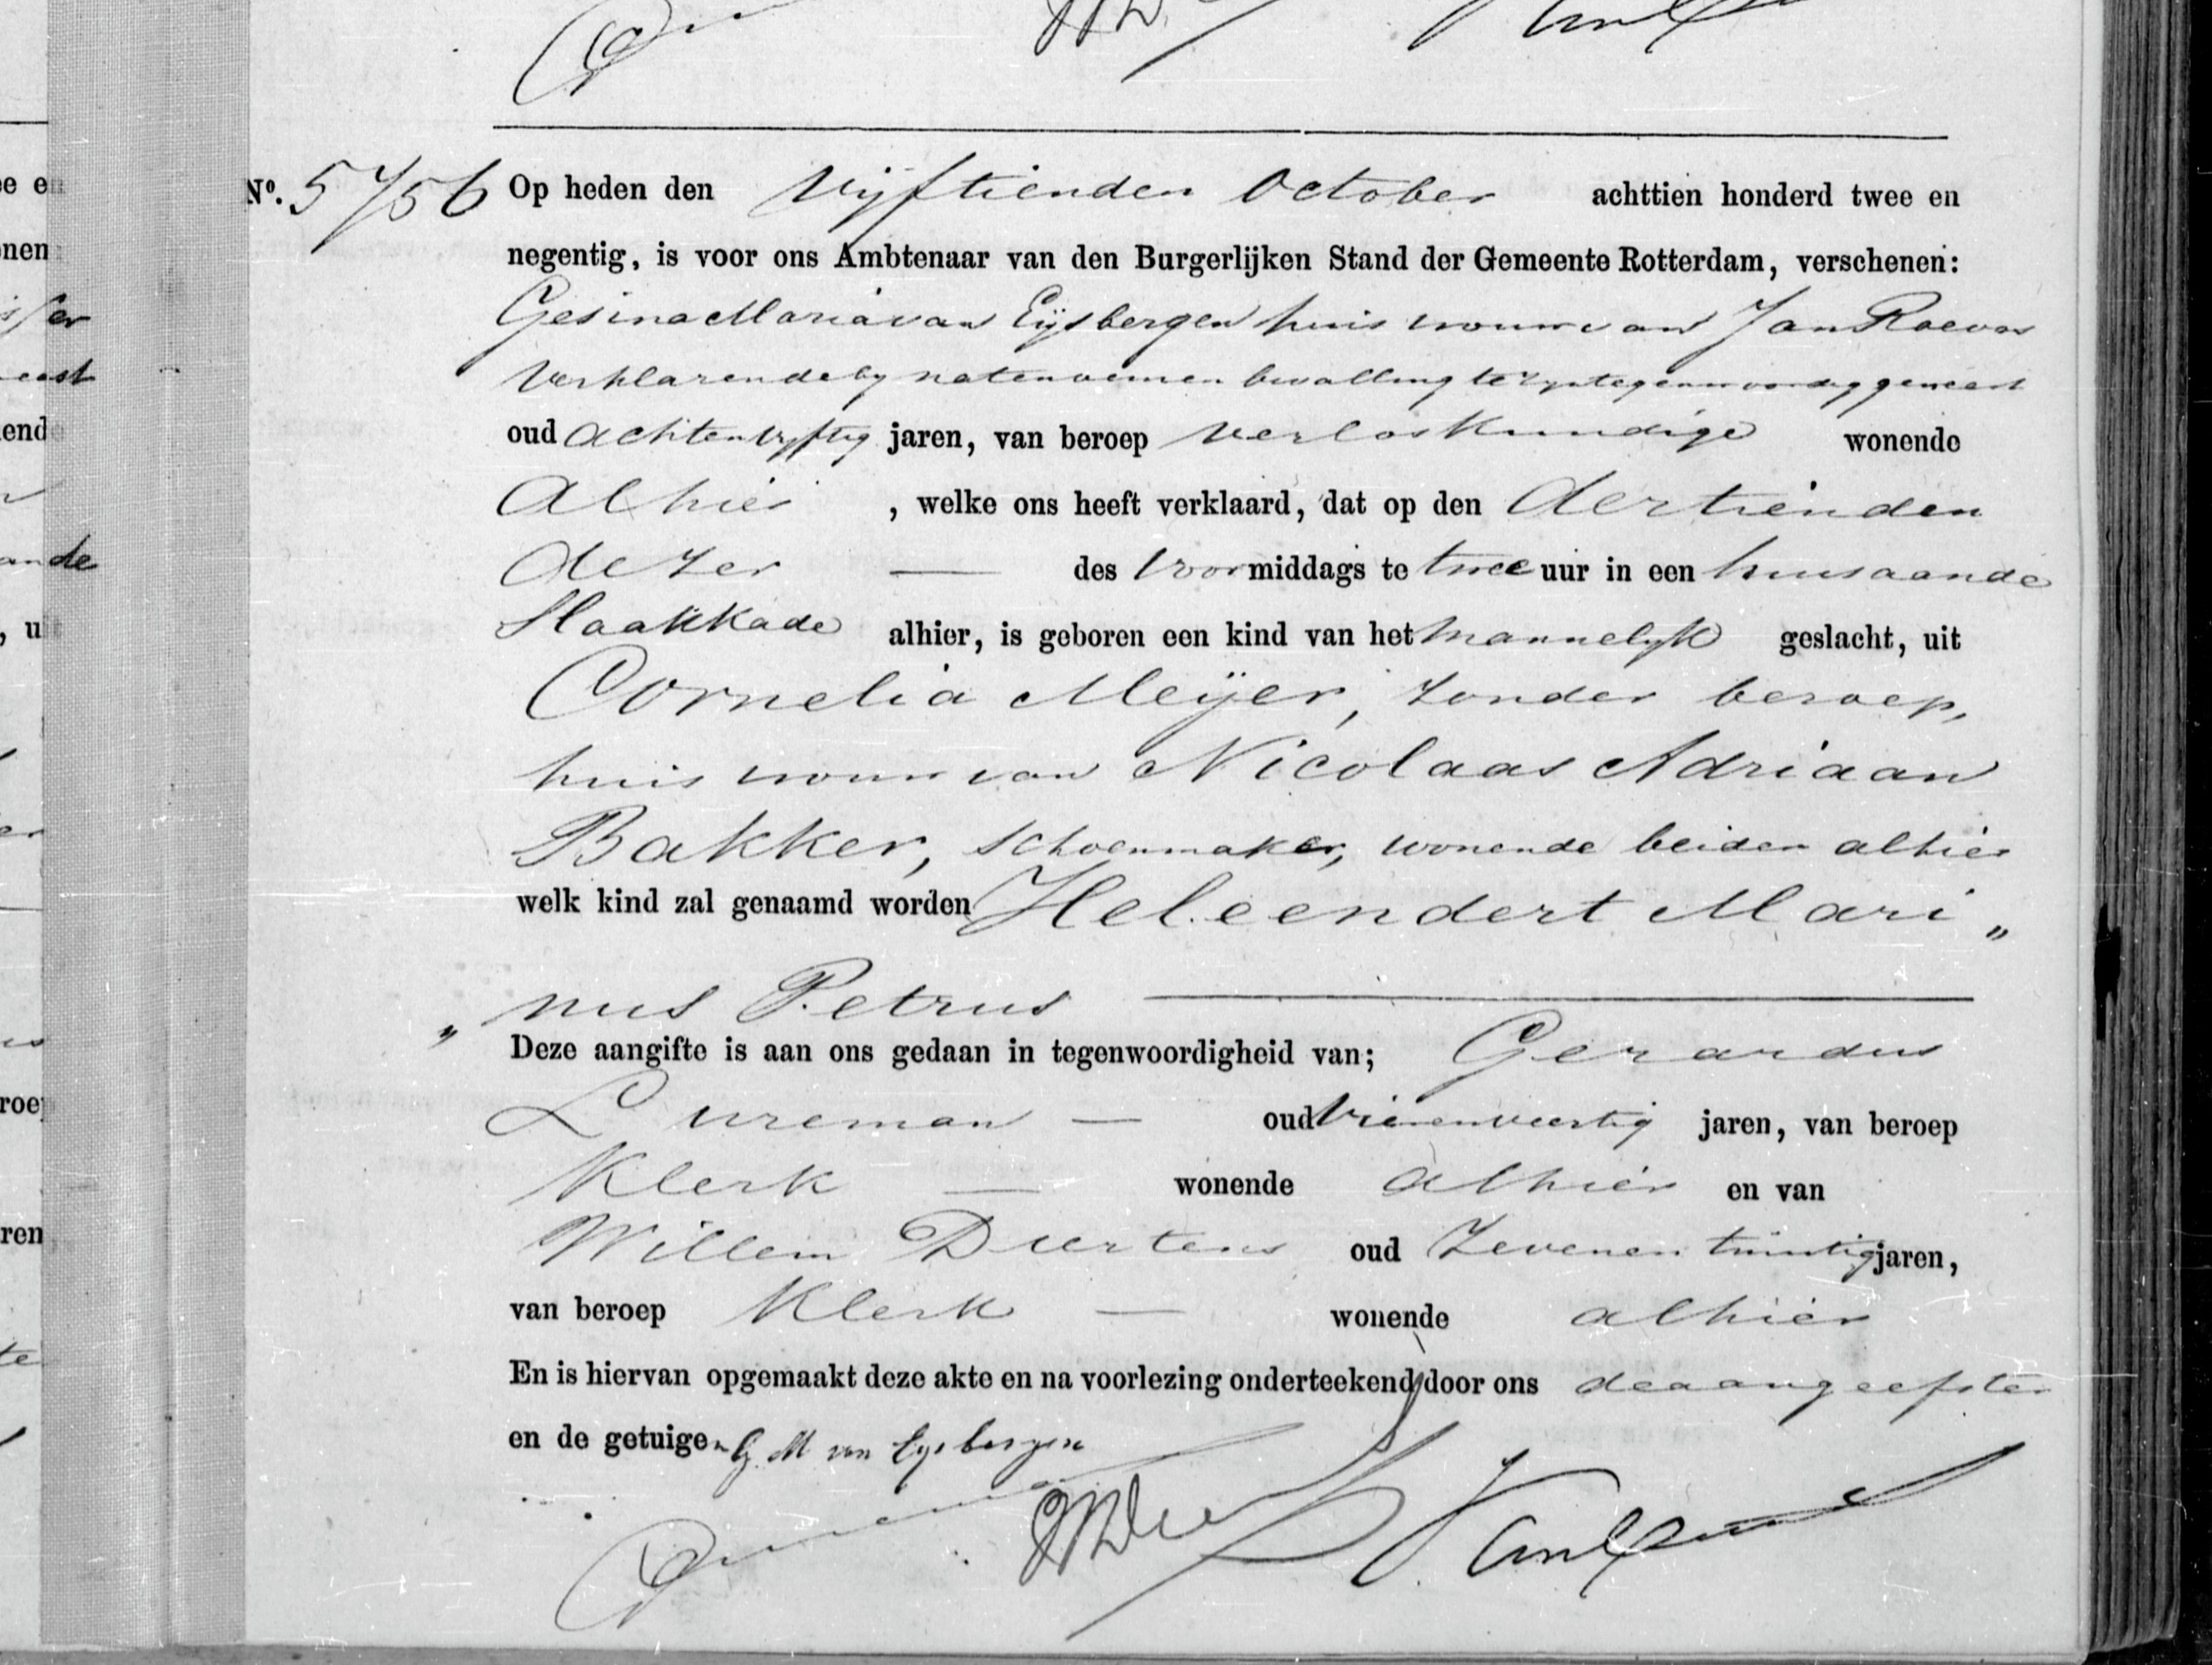 No. 5756 Op heden den Vijftienden October achttien honderd twee en
negentig, is voor ons Ambtenaar van den Burgerlijken Stand der Gemeente Rotterdam, verschenen:
Gesina Maria van Eijsbergen huisvrouw van Jan
Verklarende by natenoemen bevalling te zyn tegenwoordig geweest
oud achtenvyftig jaren, van beroep verloskundige wonende
Alhier, welke ons heeft verklaard, dat op den dertienden
dezer — des voormiddags te twee uur in een huis aan de
Slaakkade alhier, is geboren een kind van het mannelyk geslacht, uit
Cornelia Meijer, zonder beroep,
huisvrouw van Nicolaas Adriaan
Bakker, schoenmaker, wonende beiden alhier
welk kind zal genaamd worden Heleendert Mari„
„nus Petrus —
Deze aangifte is aan ons gedaan in tegenwoordigheid van; Gerardus
Lureman — oud vierenveertig jaren, van beroep
Klerk — wonende alhier en van
Willem Duertens oud Zevenentwintig jaren,
van beroep Klerk — wonende alhier
En is hiervan opgemaakt deze akte en na voorlezing onderteekend door ons de aangeefster
en de getuigen G. M van Eysbergen